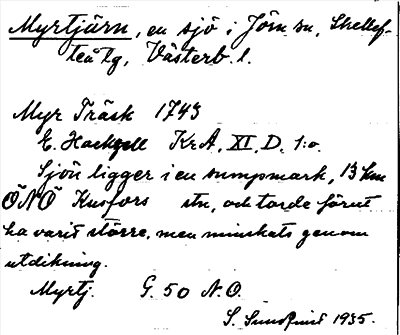 Myrtjärn, en sjö i Jörn sn, Skellef-
teå tg, Västerb. l.
Myr Träsk 1743
E. Hackzell KrA, XI, D. 1:o.
Sjön ligger i en sumpmark, 13 km
ÖNÖ Kusfors stn, och torde förut
ha varit större, men minskats genom
utdikning.
Myrtj. G. 50 N.O.
S. Sundqvist 1935.